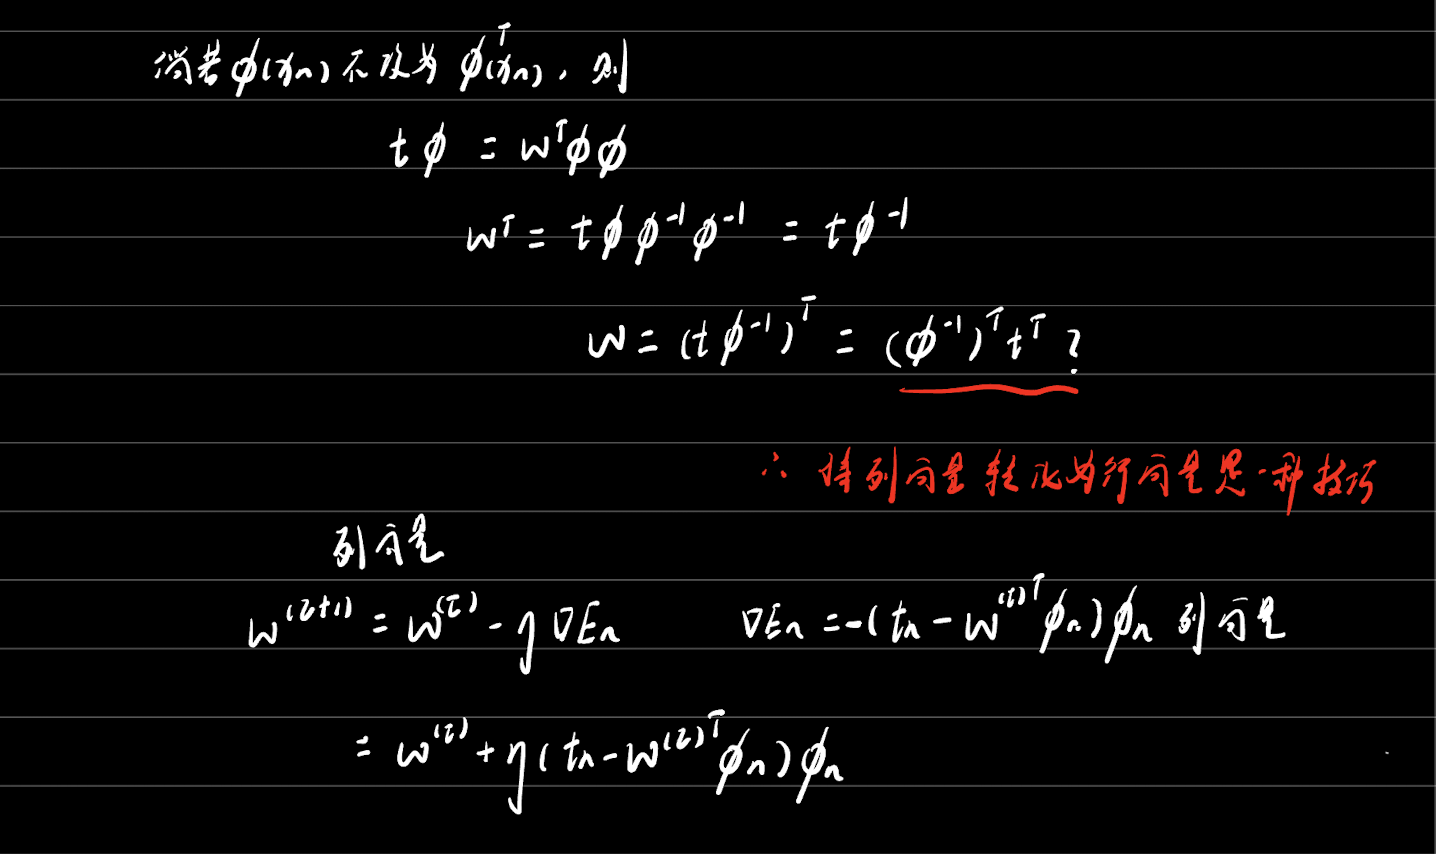 倘若 ϕ(xₙ) 不改为 ϕ(xₙ)ᵀ, 则
tϕ = wᵀϕϕ
wᵀ = tϕϕ⁻¹ϕ⁻¹ = tϕ⁻¹
w = (tϕ⁻¹)ᵀ = (ϕ⁻¹)ᵀtᵀ ?
∴ 将列向量转化为行向量是一种技巧
列向量
w^(τ+1) = w^(τ) - η∇Eₙ ∇Eₙ = -(tₙ - w^(τ)ᵀϕₙ)ϕₙ 列向量
= w^(τ) + η(tₙ - w^(τ)ᵀϕₙ)ϕₙ